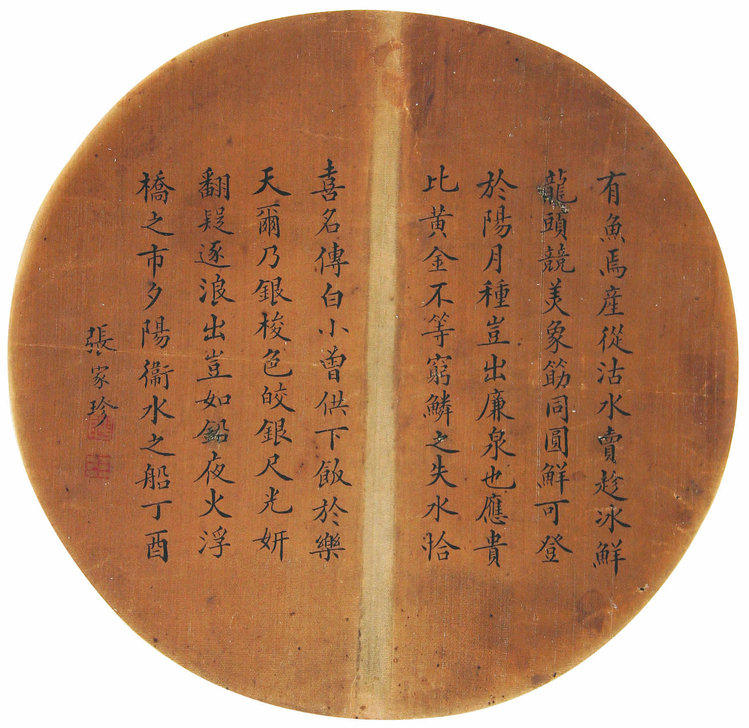 有魚焉產從沽水賣趁冰鮮
龍頭競美象筯同圓鮮可登
於陽月種豈出廉泉也應貴
比黃金不等窮鱗之失水恰
喜名傳白小曾供下飯於樂
天爾乃銀梭色皎銀尺光妍
翻疑逐浪出豈如鉛夜火浮
橋之市夕陽衞水之船丁酉
張家珍